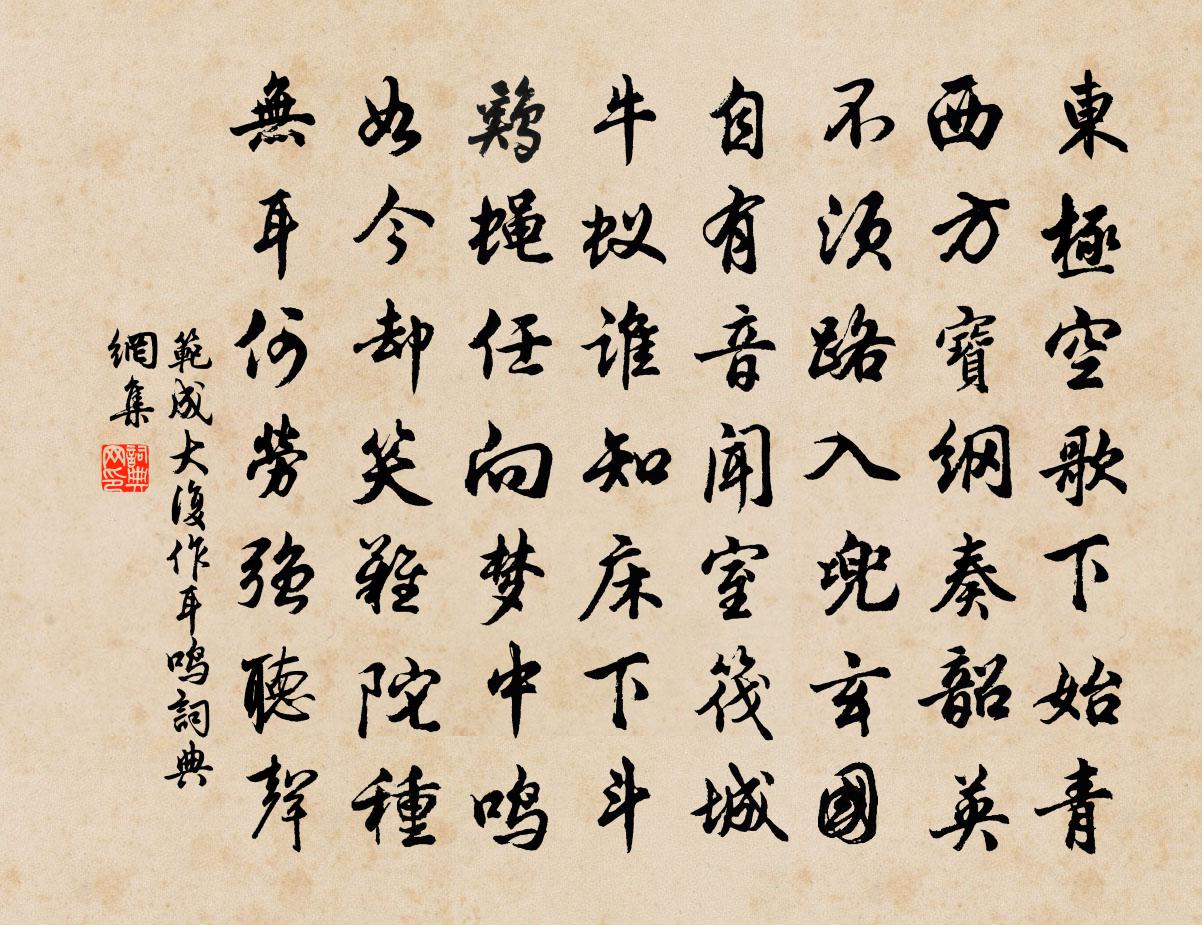 東極空歌下始青
西方寶網奏韶英
不須路入兜玄國
自有音聞室筏城
牛蚁誰知床下斗
鷄蝇任向梦中鸣
如今却笑難陀種
無耳何勞强聽聲
範成大復作耳鸣詞典
網集
詞典网印